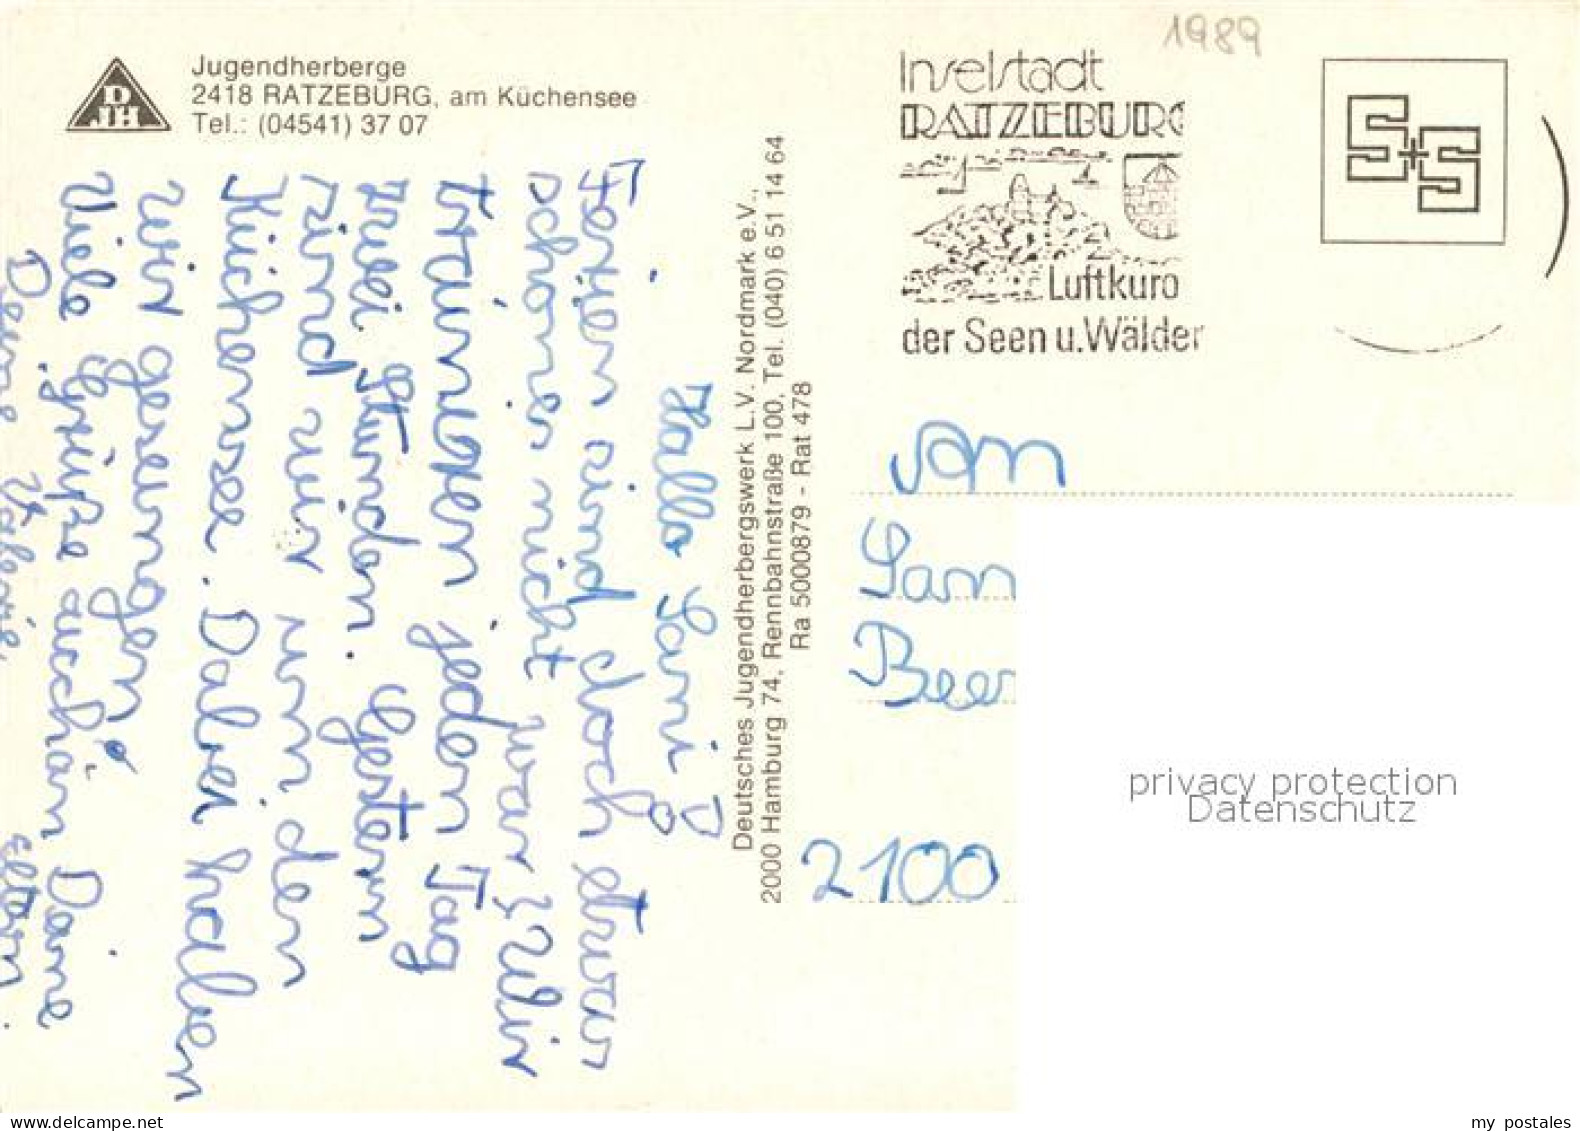 Jugendherberge
2418 RATZEBURG, am Küchensee
Tel.: (04541) 37 07
DJH
1989
Inselstadt
RATZEBURG
Luftkuro
der Seen u. Wälder
S+S
Hallo Sani!
Ferien sind doch etwas
schones nicht war? Wir
trainiren jeden Tag
zwei Stunden. Gestern
sind wir um den
Küchensee. Dabei haben
wir gesungen.
Viele Grüße auch an Deine
Deine Valerie. Eltern.
Deutsches Jugendherbergswerk L.V. Nordmark e.V.,
2000 Hamburg 74, Rennbahnstraße 100, Tel. (040) 6 51 14 64
Ra 5000879 - Rat 478
An
San
Beer
2100
privacy protection
Datenschutz
www.delcampe.net
my postales